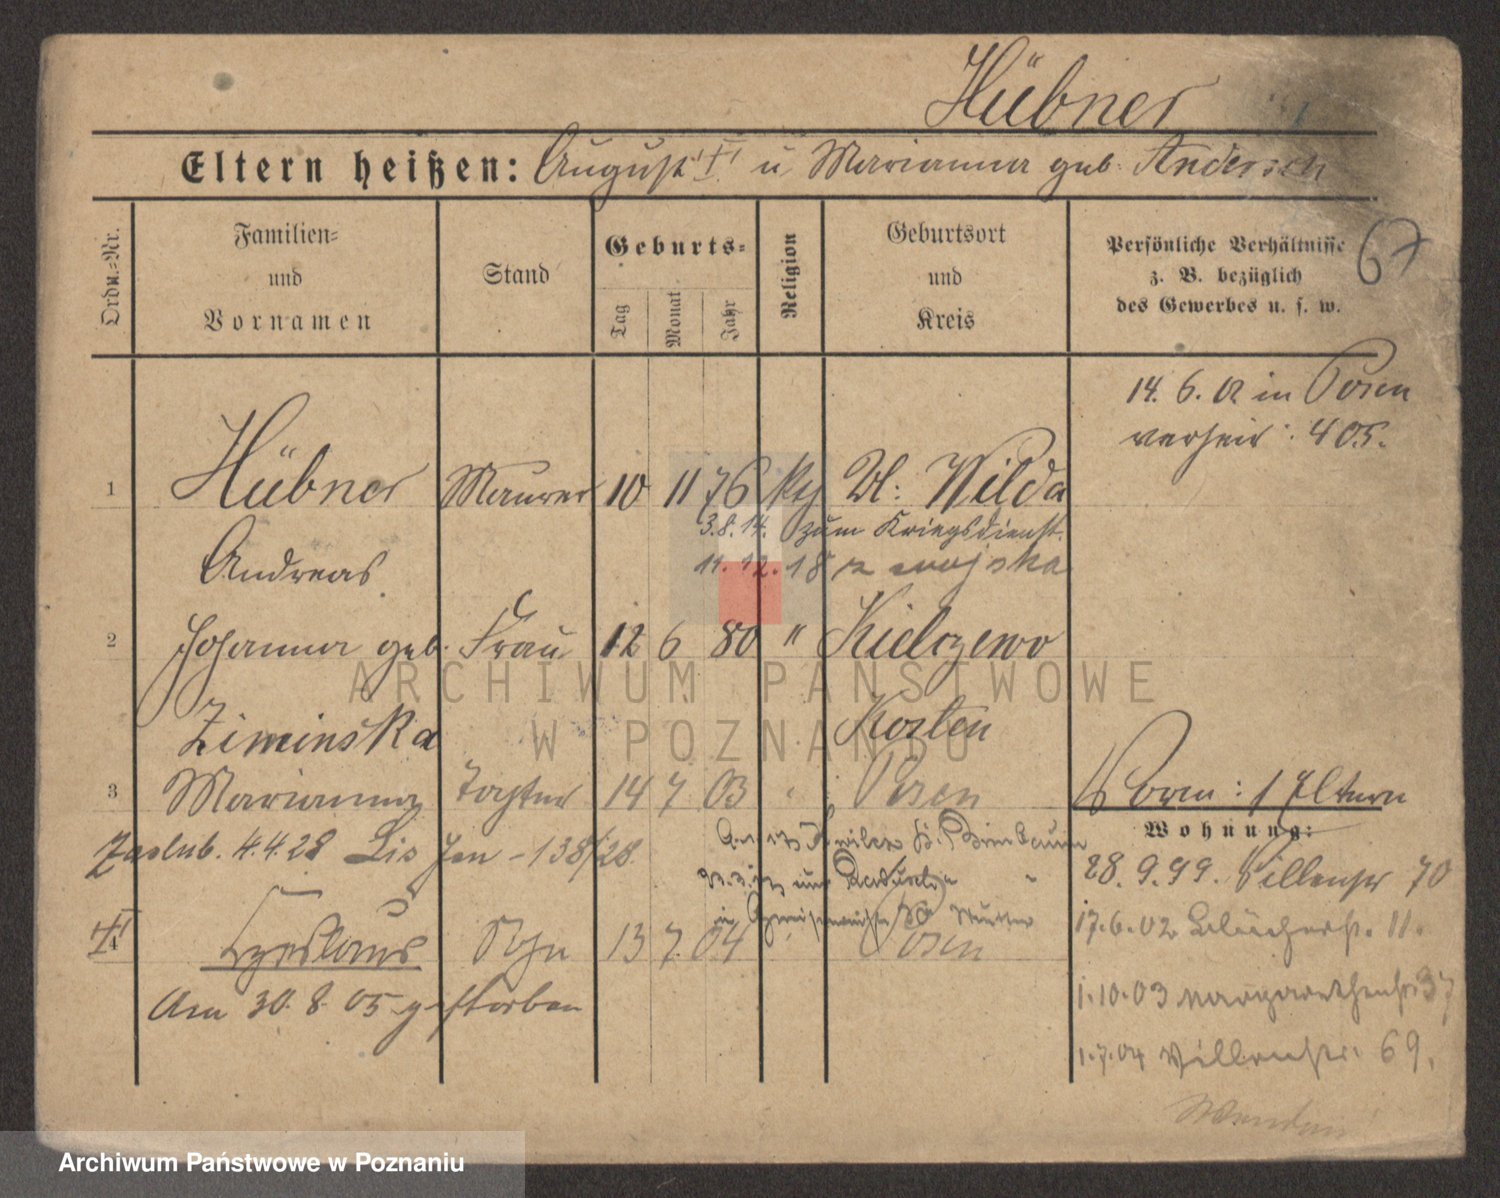 Hübner
Eltern heißen: August u Marianna geb. Andersch
Ordn.=Nr.
Familien=
und
Vornamen
Stand
Geburts=
Tag
Monat
Jahr
Religion
Geburtsort
und
Kreis
Persönliche Verhältnisse
z. B. bezüglich
des Gewerbes u. s. w.
67
14. 6. 02 in Posen
verheir: 405.
1 Hübner Maurer 10 11 76 Dl: Wilda
3.8.14. zum Kriegsdienst.
Andreas
11.12.18 z wojska
2 Johanna geb. Frau 12 6 80 " Kielczewo
Ziminska
Kosten
3 Marianna Tochter 14 7 03 Posen
Eltern
Wohnung:
Zaślub. 4.4.28 Lis Jan - 138/28.
28. 9. 99. 70
4 Czeslaus Sohn 13 7 04 Posen
17.6.02 Blücherst. 11.
Am 30. 8. 05 gestorben
1.10.03 Margarethenstr. 37
1.7.04 69.
ARCHIWUM PAŃSTWOWE
W POZNANIU
Archiwum Państwowe w Poznaniu